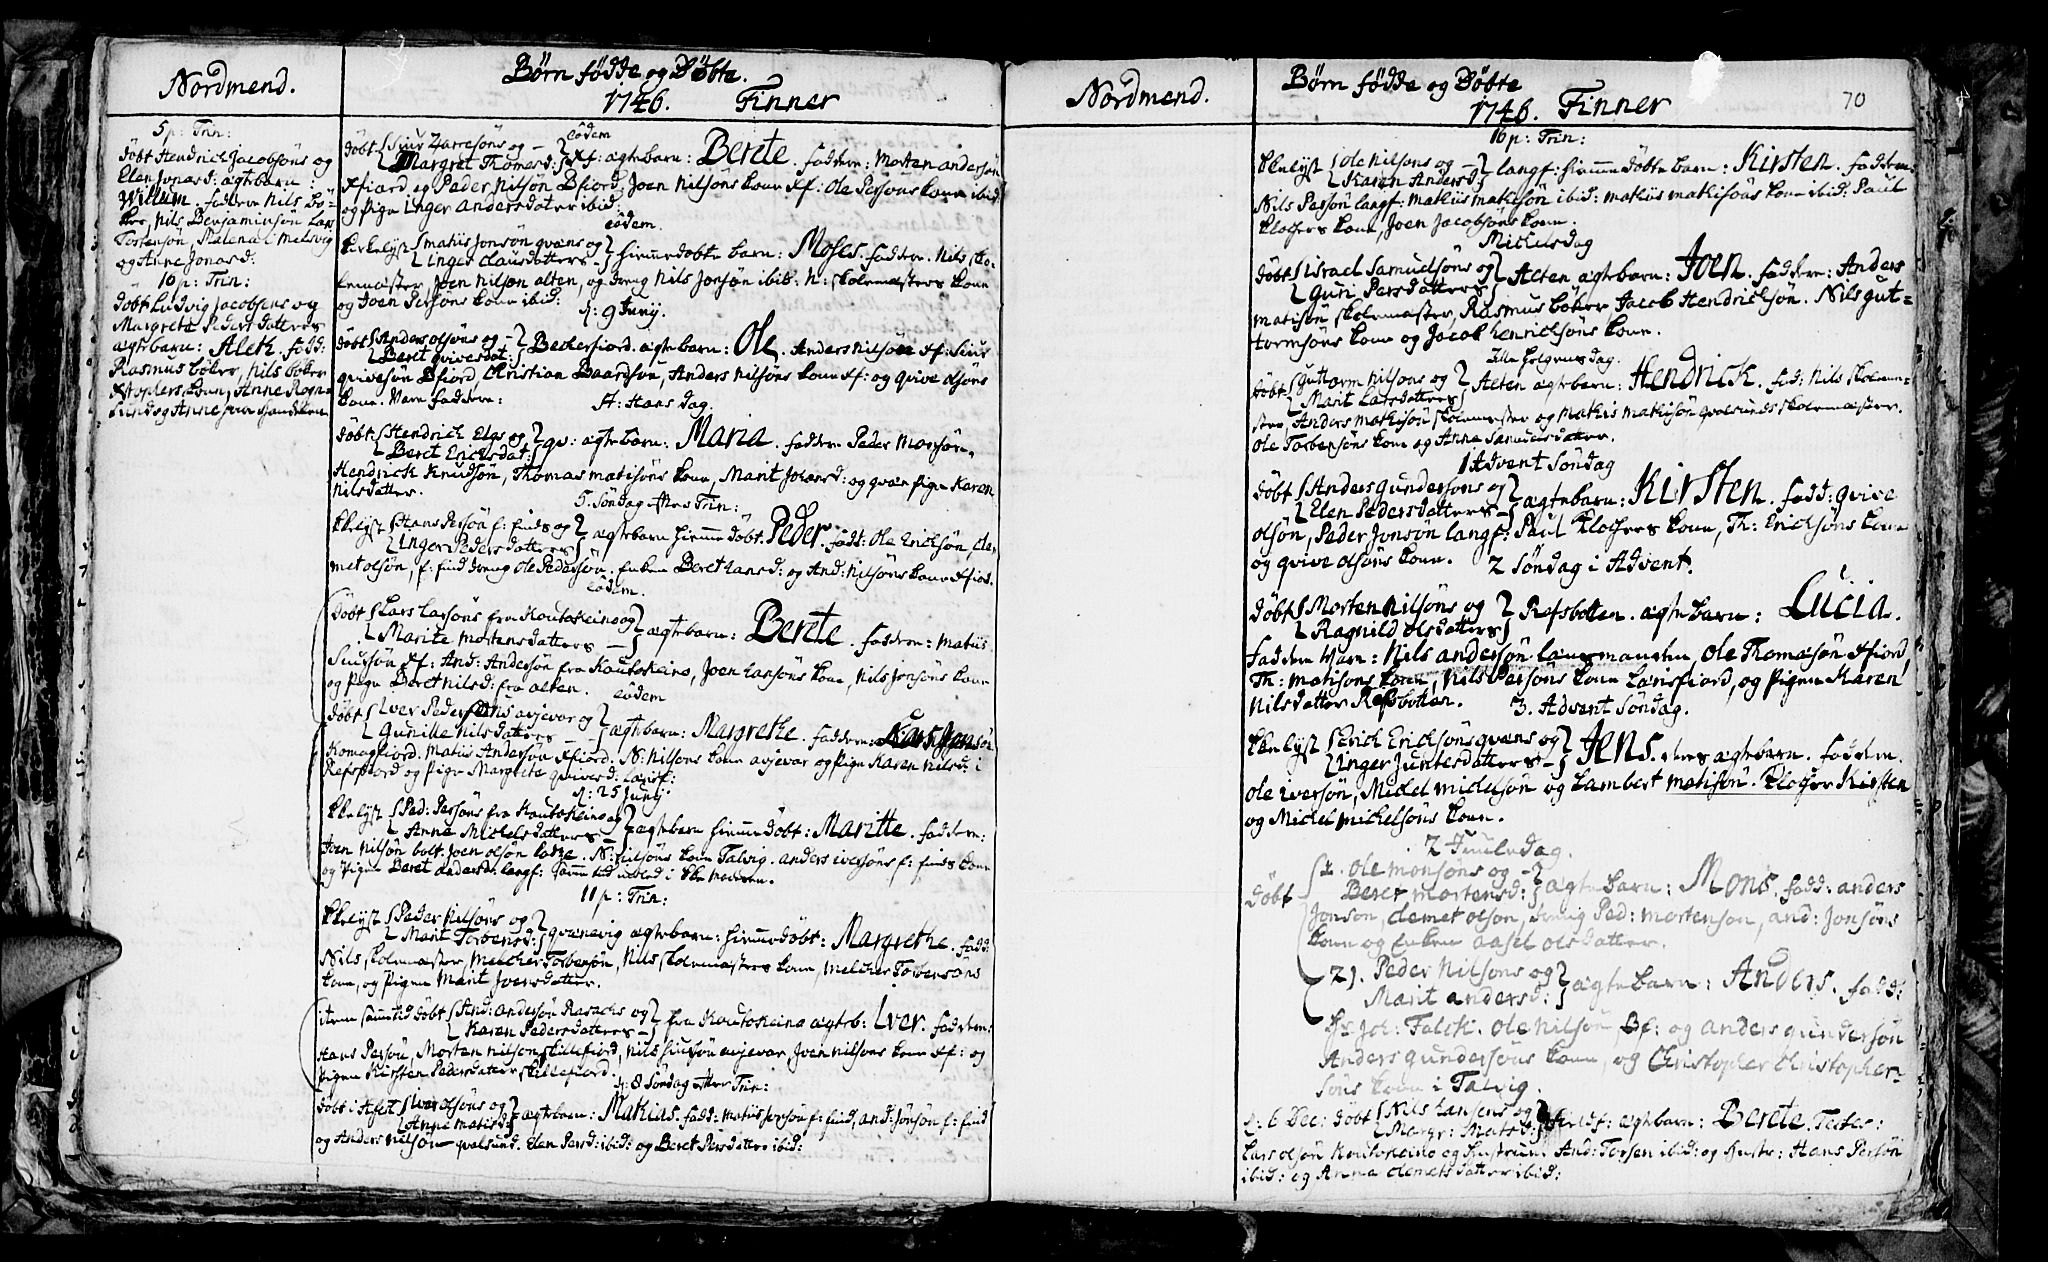 Nordmend.
5 p: Trin:
döbt Hendrick Jacobsöns og
Elen Jonasd: ægtebarn
Willum. faddere Nils
Nils Benjaminsön Lars
Torstensön, Malena Melsvig
og Anne Jonasd:
16 p: Trin:
döbt Ludvig Jacobsens og
Margrete Peders datters
ægtebarn: Aleth. fadd:
Rasmus böker, Nils böker
Anne
og Anne
Børn fødde og Døbte.
1746. Finner
eodem
döbt Siur og
Margret Thomesd: Xf: ægtebarn: Berete. faddere: Morten andersön
Xfiord og Peder Nilsön Bfiord, Joen Nilsöns kone Xf: Ole Persöns kone ibid:
og Pigen Inger Andersdatter ibid:
eodem.
Kirkelyst Matiis Jonsön qvæns og
Inger Clausdatters hiemmedöbte barn: Moses. faddere Nils Sko-
lemester, Joen Nilsön alten, og dreng Nils Jonsön ibid: N: Skolemesters kone
og Joen Persöns kone ibid:
d: 9 Junij.
döbt Anders olsöns og
Beret qvivesdat: Beckerfiord. ægtebarn: Ole. Anders Nilsön Xf: Siur
qvivesön Bfiord, Christian Baardsön, Anders Nilsöns kone Xf: og qvive olsöns
kone: Vare faddere:
St: Hans dag.
döbt Hendrich Elgs og
Beret Ericksdat: qv: ægtebarn: Maria. faddere Peder Monsön,
Hendrick Knudsön, Thomas Matisöns kone, Marit Johansd: og qvæn pigen Karen
Nilsdatter.
5. Söndag efter Trin:
Kkelyst Hans Persön f: finds og
Inger Pedersdatters ægtebarn hiemme döbt. Peder. fadd: Ole Ericksön, Cle-
met olsön, f: find dreng Ole Pedersön. Enken Beret Hansd: og And: Nilsöns kone Xfior.
eodem.
döbt Lars Larsöns fra Koutokeino og
Marite Mortensdatters ægtebarn: Berete. faddere: Matiis
Siursön Xf: And: Andersön fra Koutokeino, Joen Larsöns kone, Nils Jonsöns kone
og Pigen Beret Nilsd: fra alten.
eodem
döbt Iver Pedersöns avjevar og
Gunille Nilsdatters ægtebarn: Margrethe. faddere:
Komagfiord. Matiis Andersön Xfiord. N: Nilsöns kone avjevar og Pigen Karen Nilsd: i
Refsfiord og Pigen Margrete qvivesd: Larsf:
d: 25 Junij.
Kkelyst Ped: Persöns fra Koutokeino og
Anne Michelsdatters ægtebarn hiemmedöbt: Maritte. faddere:
Joen Nilsön bolt. Joen olsön N: Nilsöns kone Talvig. anders iversöns f: finds kone
og Pigen Beret andersd: langf:
11 p: Trin:
Kkelyst Peder Nilsöns og
Marit Torbensd: qvænvig ægtebarn: hiemmedöbt: Margrethe. fadd:
Nils Skolemester, Melcher Torbensön, Nils Skolemesters kone, Melcher Torbensöns
kone, og Pigen Marit Joensdatter.
item samme tid döbt And: andersön og
Karen Pedersdatters fra Koutokeino ægteb: Iver. faddere:
Hans Persön, Morten Nilsön Skillefiord, Nils Siursön avjevar, Joen Nilsöns kone Xf: og
Pigen Kirsten Pedersdatter Skillefiord.
d: 8 Söndag efter Trin:
Döbt i Iver olsöns og
Anne Matisd: ægtebarn: Mathias. fadd: Matiis Persön f: find, And: Jonsön f: find
og Anders Nilsön qvalsund. Elen Persd: ibid: og Beret Persdatter ibid:
Nordmend.
Børn fødde og Døbte
1746. Finner
70
16 p: Trin:
Kkelyst Ole Nilsöns og
Karen Andersd: langf: hiemmedöbte barn: Kirsten. faddere
Nils Persön langf: Mathiis Mathisön ibid: Mathiis Mathisöns kone ibid: Paul
Klockers kone, Joen Jacobsöns kone.
Michelsdag
döbt Israel Samuelsöns og
Guri Persdatters Alten ægtebarn: Joen. faddere: Anders
Matisön Skolemester, Rasmus böker Jacob Hendrichsön. Nils gut-
tormsöns kone og Jacob Henrichsöns kone.
Alle Helgenes dag.
döbt Guttorm Nilsöns og
Marit Larsdatters Alten ægtebarn: Hendrick. fad: Nils Skolem-
ster, Anders Mathisön Skolemester og Mathis Mathisön qvalsunds Skolemester.
Ole Torbensöns kone og Anne Samuelsdatter.
1 Advent Söndag
döbt Anders Gundersöns og
Elen Pedersdatters ægtebarn: Kirsten. fadd: qvive
olsön, Peder Jonsön langf: Paul Klockers kone, Th: Ericksöns kone
og qvive olsöns kone.
2 Söndag i Advent.
döbt Morten Nilsöns og
Ragnild olsdatters Refsbotten. ægtebarn: Lucia.
Faddere Vare: Nils andersön lensmanden, Ole Thomasön Xfiord
Th: Matisöns kone, Nils Persöns kone Larsfiord, og Pigen Karen
Nilsdatter Refsbotten.
3. Advent Söndag.
Kkelyst Erick Ericksöns qvæns og
Inger Juntesdatters Jens. deres ægtebarn. Faddere
Ole Iversön, Michel Michelsön og Lambert Matisön. Klocker Kirsten
og Michel Michelsöns kone.
2 Juuledag.
Döbt
1. Ole Monsöns og
Beret Mortensd: ægtebarn: Mons. fadd: anders
Jonsön, Clemet olsön, dreng Ped: Mortensön, and: Jonsöns
kone og Enken Aasel olsdatter.
2). Peder Nilsöns og
Marit andersd: ægtebarn: Anders. fadd:
Hr Joh: Falck. Ole Nilsön Bf: og anders gundersön
Anders gundersöns kone, og Christopher Christopher-
söns kone i Talvig.
d: 6 Dec: döbt Nils Hansens og
Margr: Matsd: ægtebarn: Berete. Testes:
Lars olsön Koutokeino og Hustrue, And: Torsen ibid: og Hustr: Hans Persön
ibid: og Anna Clemetsdatter ibid: